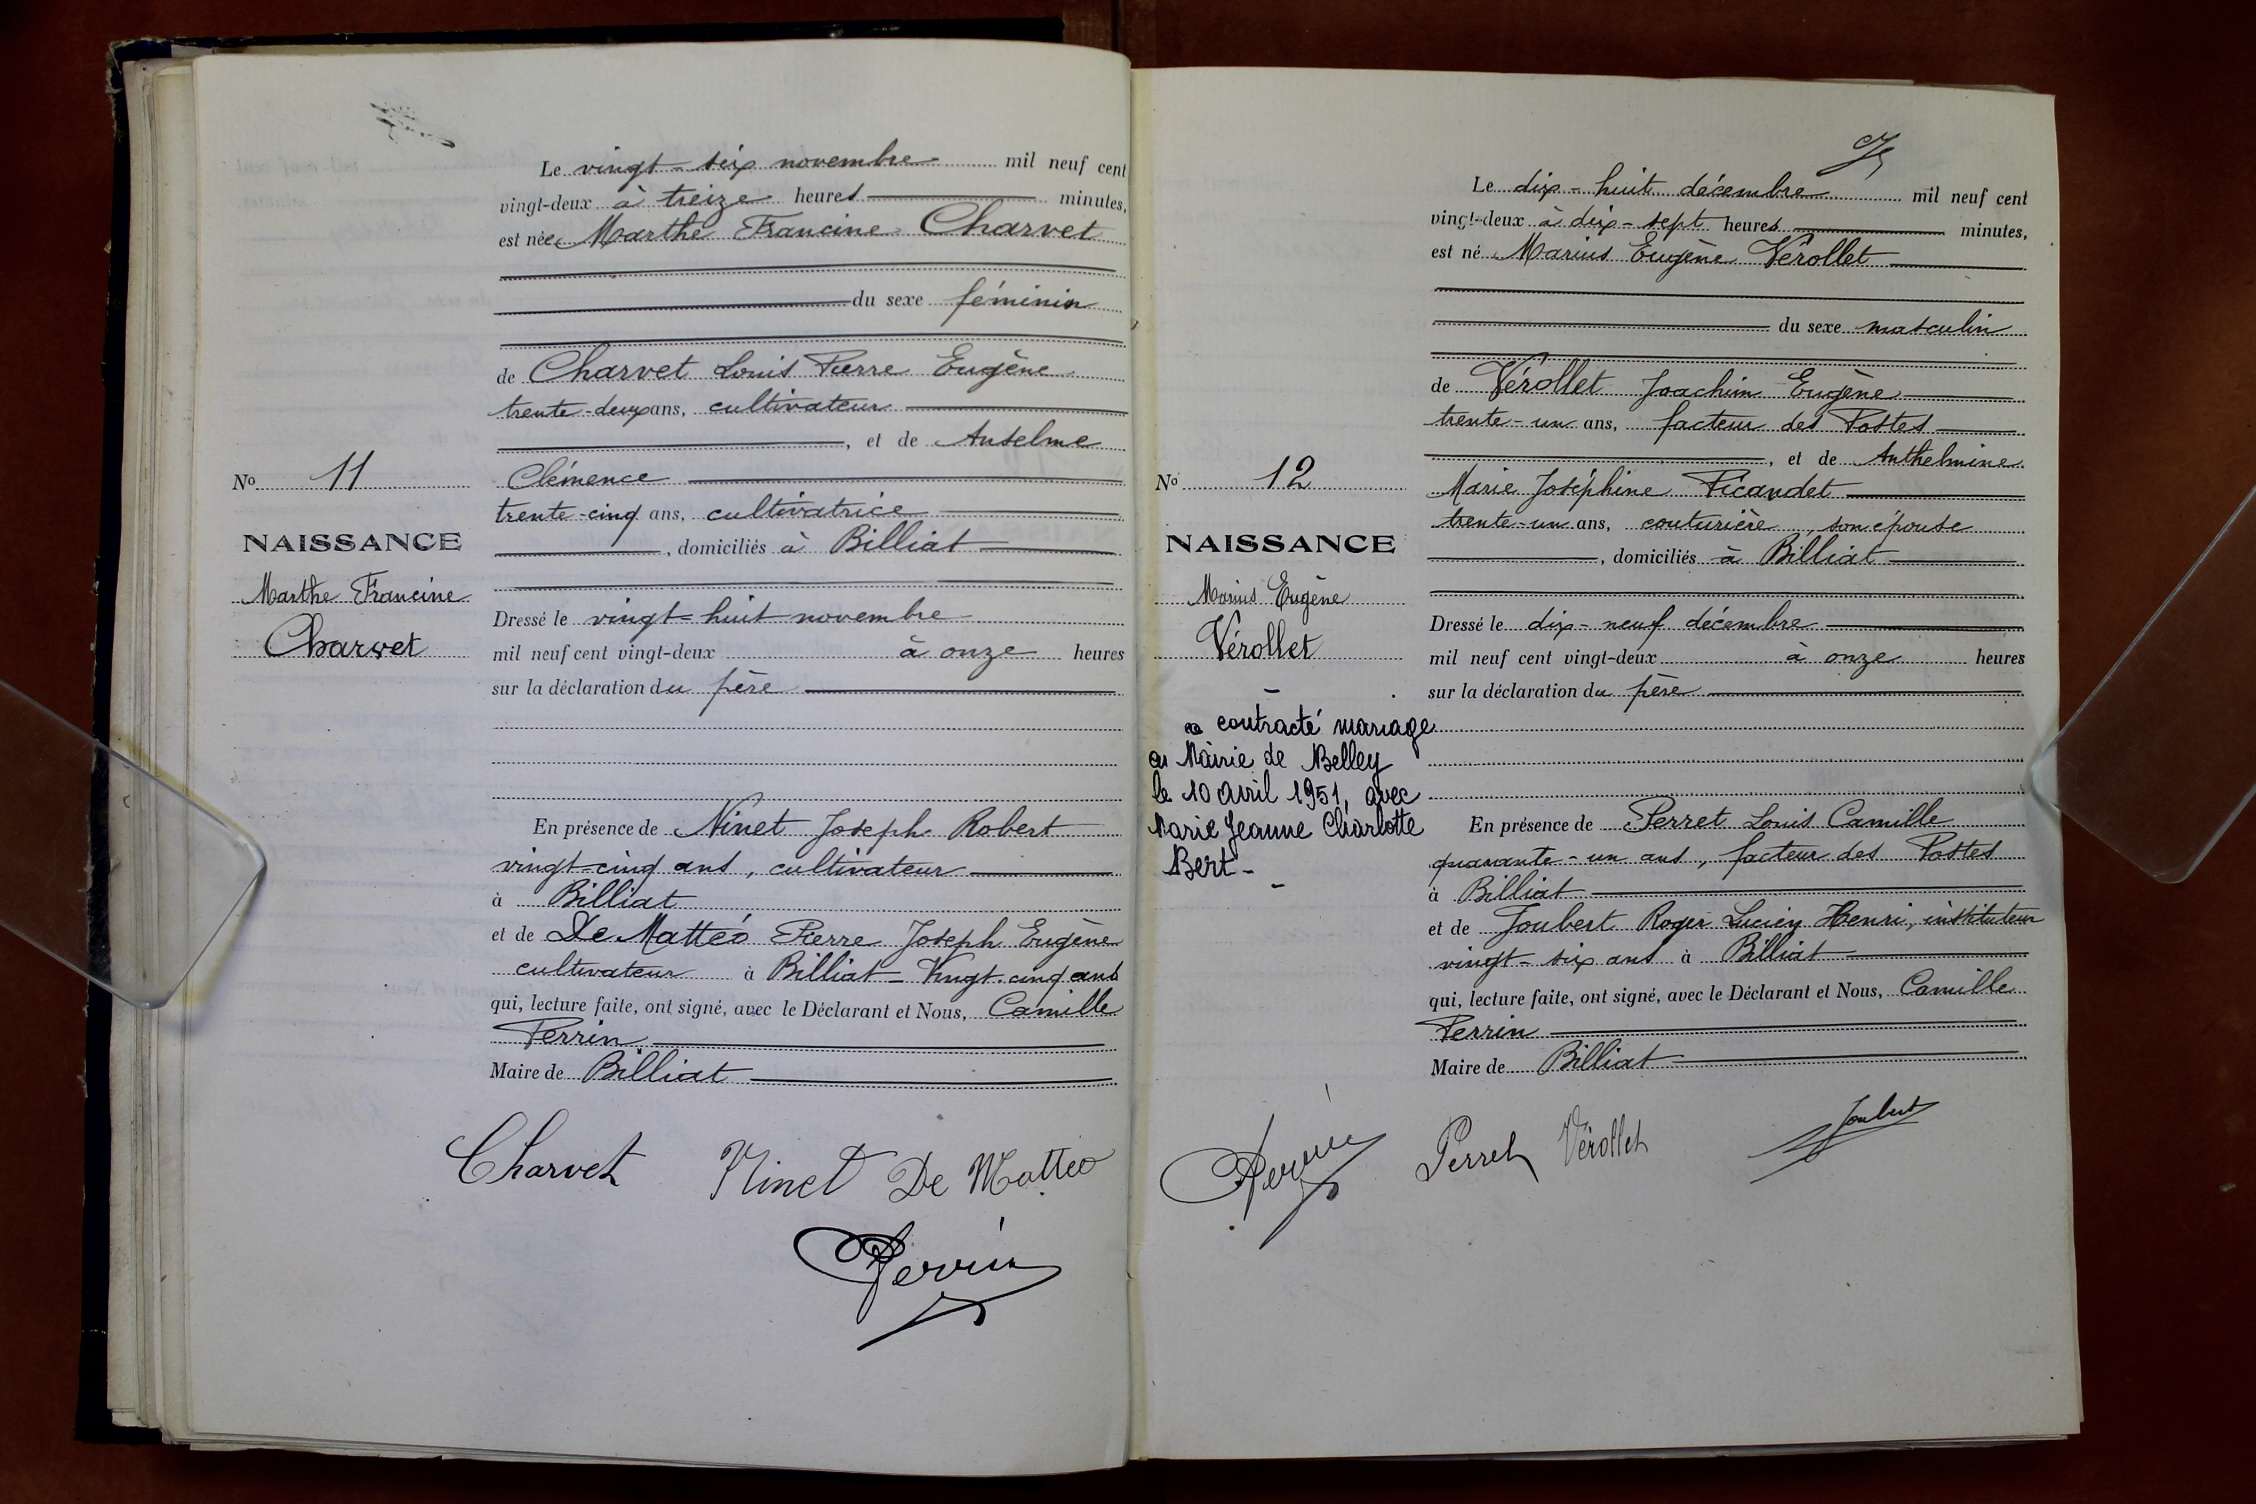 Le vingt-six novembre mil neuf cent
vingt-deux à treize heures minutes,
est née Marthe Francine Charvet
du sexe féminin
de Charvet Louis Pierre Eugène
trente-deux ans, cultivateur
, et de Anselme
Clémence
trente-cinq ans, cultivatrice
, domiciliés à Billiat
No 11
NAISSANCE
Marthe Francine
Charvet
Dressé le vingt-huit novembre
mil neuf cent vingt-deux à onze heures
sur la déclaration du père
En présence de Ninet Joseph Robert
vingt-cinq ans, cultivateur
à Billiat
et de De Mattéo Pierre Joseph Eugène
cultivateur à Billiat - Vingt-cinq ans
qui, lecture faite, ont signé, avec le Déclarant et Nous, Camille
Perrin
Maire de Billiat
Charvet Ninet De Matteo
Perrin
Le dix-huit décembre mil neuf cent
vingt-deux à dix-sept heures minutes,
est né Marius Eugène Vérollet
du sexe masculin
de Vérollet Joachim Eugène
trente-un ans, facteur des Postes
, et de Anthelmine
Marie Joséphine Picandet
trente-un ans, couturière, son épouse
, domiciliés à Billiat
No 12
NAISSANCE
Marius Eugène
Vérollet
a contracté mariage
en Mairie de Belley
le 10 avril 1951, avec
Marie Jeanne Charlotte
Bert -
Dressé le dix-neuf décembre
mil neuf cent vingt-deux à onze heures
sur la déclaration du père
En présence de Perret Louis Camille
quarante-un ans, facteur des Postes
à Billiat
et de Joubert Roger Lucien Henri, instituteur
vingt-six ans à Billiat
qui, lecture faite, ont signé, avec le Déclarant et Nous, Camille
Perrin
Maire de Billiat
Perrin Perret Vérollet Joubert